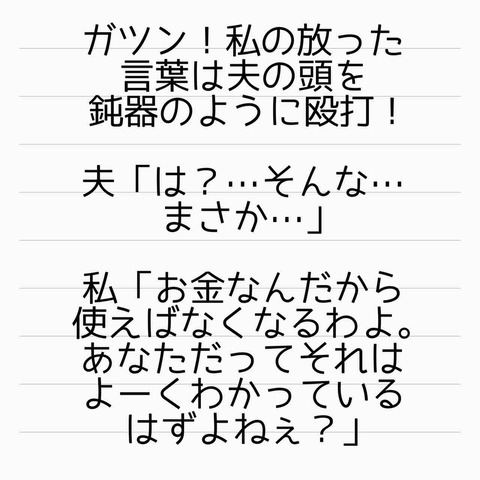 ガツン！私の放った
言葉は夫の頭を
鈍器のように殴打！
夫「は？…そんな…
まさか…」
私「お金なんだから
使えばなくなるわよ。
あなただってそれは
よーくわかっている
はずよねぇ？」